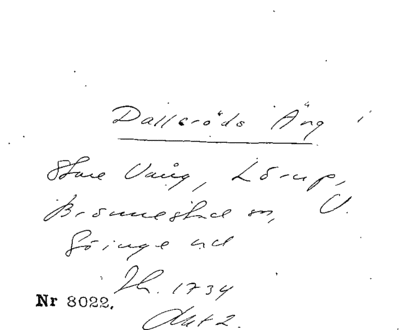 Dalleröds Äng i
Store Vång, Lörup,
Brönnestad sn, V.
Göinge hd
Jb. 1734
Akt 2.
Nr 8022.